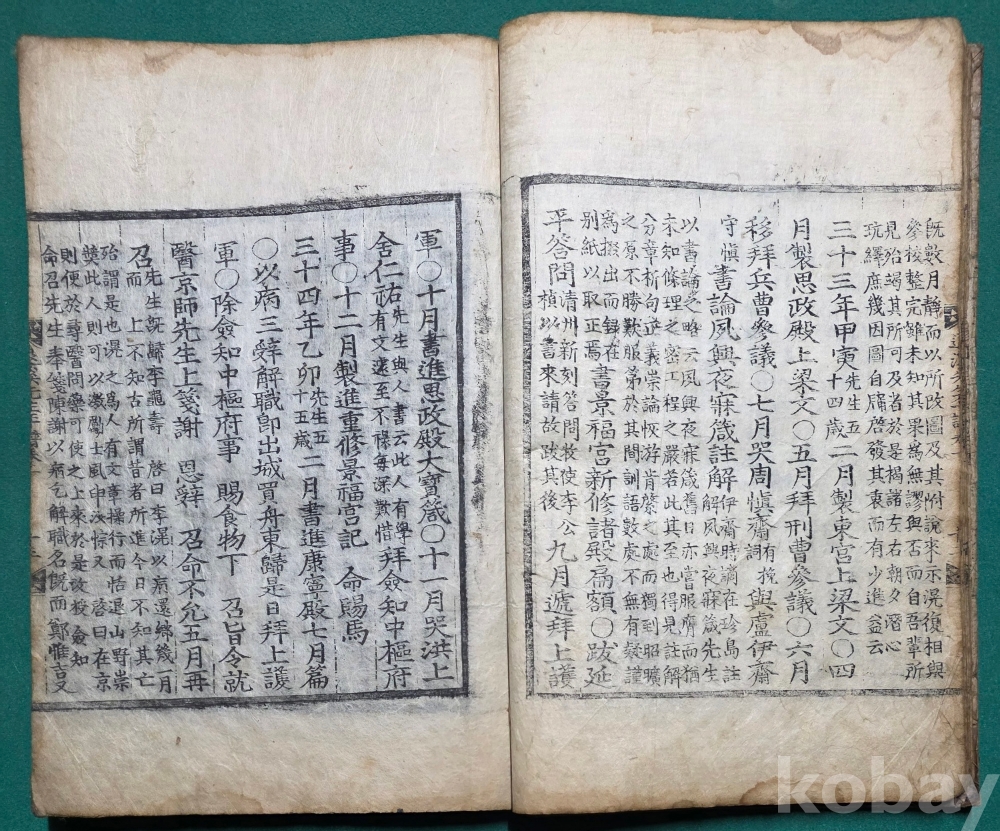 既數月靜而以所改圖及其附說來示滉復相與
參校整完雖未知其果為無謬與否而自吾輩所
見殆竭其所可及者於是揭諸左右朝夕潛心
玩繹庶幾因圖自牖啓發其衷而有少進益云
三十三年甲寅先生五十四歲二月製東宮上梁文○四
月製思政殿上梁文○五月拜刑曹參議○六月
移拜兵曹參議○七月哭周愼齋有挽詞與盧伊齋
守愼書論夙興夜寐箴註解伊齋時謫在珍島註解夙興夜寐箴先生
以書論之略云夙興夜寐箴舊日亦嘗服膺而猶
未知條理之密工程之嚴若此其至也得見註解
分章析句逆義崇論恢游肯綮之處而獨到昭曠
之原不勝歎服第於其間訓語數處不無有疑謹
寫掇出而錄在別紙以取正焉○書景福宮新修諸殿扁額○跋延
平答問淸州新刻答問牧使李公楨以書來請故跋其後九月遞拜上護
軍○十月書進思政殿大寶箴○十一月哭洪上
舍仁祐先生與人書云此人有學有文遽至不祿每深歎惜拜僉知中樞府
事○十二月製進重修景福宮記 命賜馬
三十四年乙卯先生五十五歲二月書進康寧殿七月篇
○以病三辭解職卽出城買舟東歸是日拜上護
軍○除僉知中樞府事 賜食物下 召旨令就
醫京師先生上箋謝 恩辭 召命不允五月再
召先生旣歸李龜壽 啓曰李滉以病還鄕幾一月
而 上不知古所謂昔者所進今日不知其亡
殆謂是也滉之爲人有文章操行而恬退山野崇
奬此人則可以激勵士風申汝悰又 啓曰在京
則便於尋醫問藥可使之上來於是改授僉知
命召先生奉箋陳謝以病乞解職名旣而鄭惟吉又
kobay